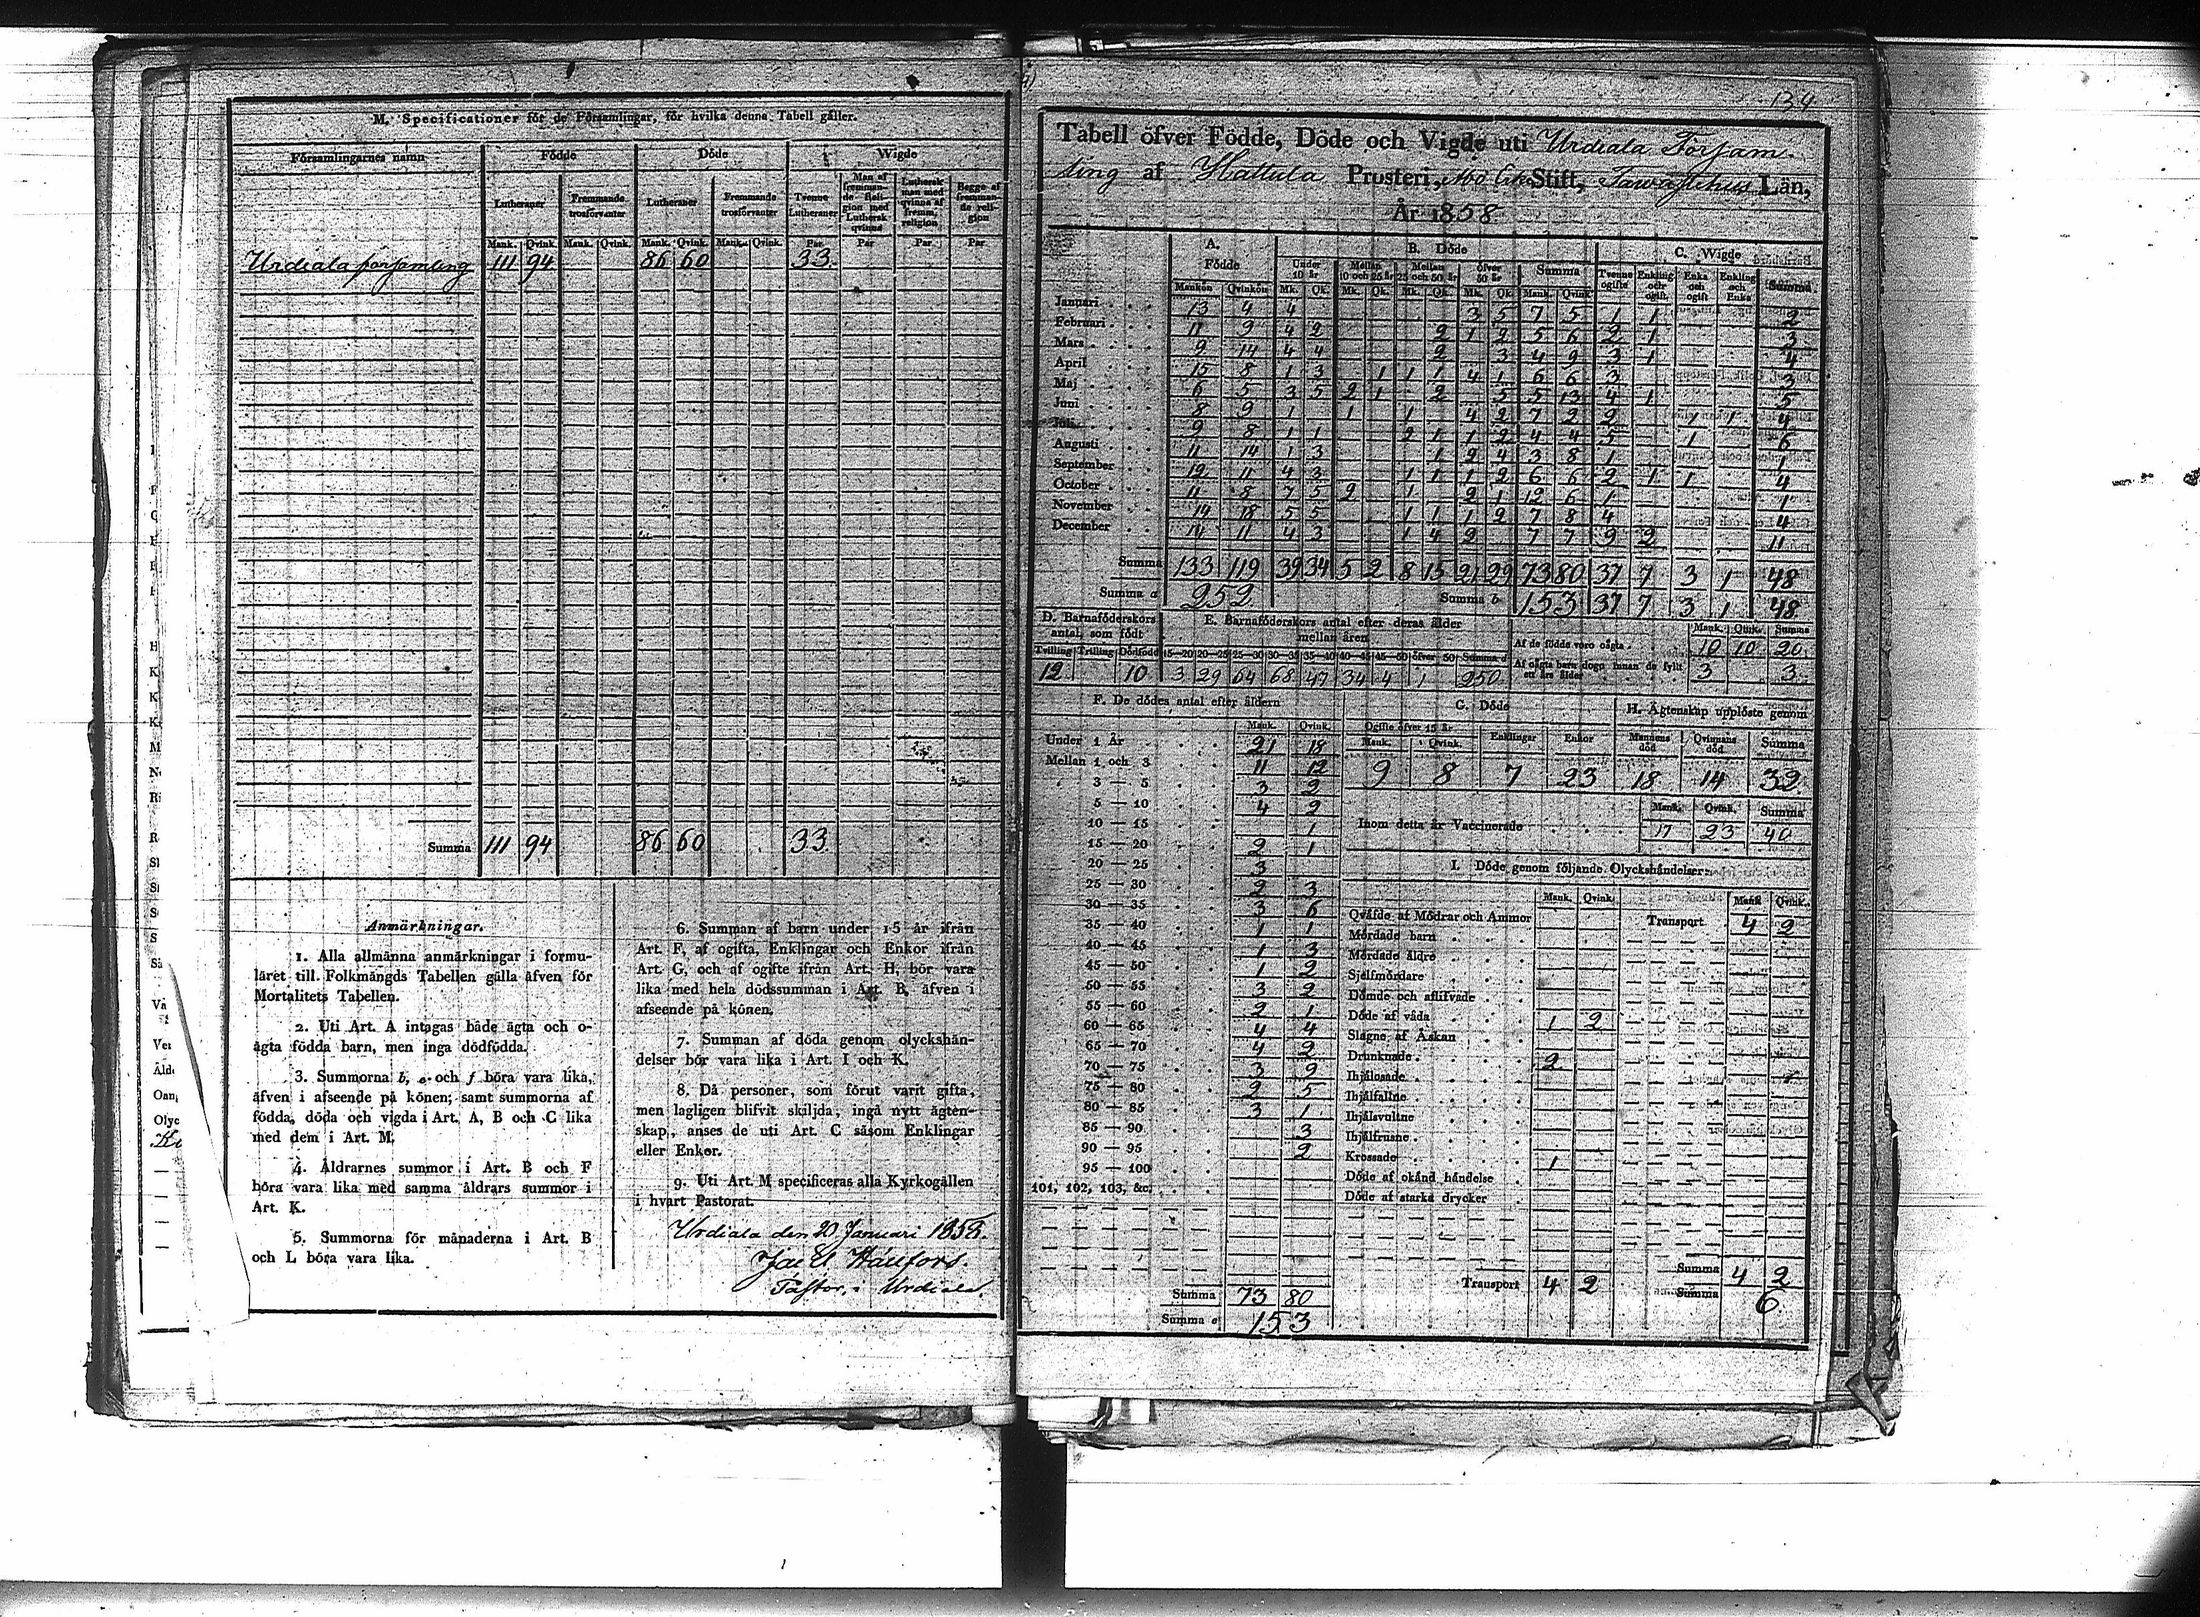 M. Specificationer för de Församlingar, för hvilka denna Tabell gäller.
Församlingarnes namn Födde Döde Wigde
Lutheraner Fremmande trosförvanter Lutheraner Fremmande trosförvanter Tvenne Lutheraner Man af fremmande religion med Luthersk qvinna Luthersk man med qvinna af fremm. religion Begge af fremmande religion
Mank. Qvink. Mank. Qvink. Mank. Qvink. Mank. Qvink. Par Par Par Par
Urdiala församling 111 94 86 60 33
Summa 111 94 86 60 33
Anmärkningar.
1. Alla allmänna anmärkningar i formu-
läret till Folkmängds Tabellen gälla äfven för
Mortalitets Tabellen.
2. Uti Art. A intagas både ägta och o-
ägta födda barn, men inga dödfödda.
3. Summorna b, e och f böra vara lika,
äfven i afseende på könen; samt summorna af
födda, döda och vigda i Art. A, B och C lika
med dem i Art. M.
4. Åldrarnes summor i Art. B och F
böra vara lika med samma åldrars summor i
Art. K.
5. Summorna för månaderna i Art. B
och L böra vara lika.
6. Summan af barn under 15 år ifrån
Art. F, af ogifta, Enklingar och Enkor ifrån
Art. G, och af ogifte ifrån Art. H, bör vara
lika med hela dödssumman i Art. B, äfven i
afseende på könen.
7. Summan af döda genom olyckshän-
delser bör vara lika i Art. I och K.
8. Då personer, som förut varit gifta,
men lagligen blifvit skiljda, ingå nytt ägten-
skap, anses de uti Art. C såsom Enklingar
eller Enkor.
9. Uti Art. M specificeras alla Kyrkogällen
i hvart Pastorat.
Urdiala den 20 Januari 185
Pastor i Urdiala.
134
Tabell öfver Födde, Döde och Vigde uti Urdiala Försam-
ling af Hattula Prosteri, Åbo Stift, Tawastehus Län,
År 1858
A. Födde B. Döde C. Wigde
Under 10 år Mellan 10 och 25 år Mellan 25 och 50 år öfver 50 år Summa Tvenne ogifte Enkling och ogift Enka och ogift Enkling och Enka Summa
Mankön Qvinkön Mk. Qk. Mk. Qk. Mk. Qk. Mk. Qk. Mank. Qvink.
Januari 13 4 4 3 5 7 5 1 1 2
Februari 11 9 4 2 2 1 2 5 6 2 1 3
Mars 9 14 4 4 2 3 4 9 3 1 4
April 15 8 1 3 1 1 1 4 1 6 6 3 3
Maj 6 5 3 5 2 1 2 5 5 13 4 1 5
Juni 8 9 1 1 1 4 2 7 2 2 1 1 4
Juli 9 8 1 1 2 1 1 2 4 4 5 1 6
Augusti 11 14 1 3 1 2 4 3 8 1 1
September 12 11 4 3 1 1 1 2 6 6 2 1 1 4
October 11 8 7 5 2 1 2 1 12 6 1 1
November 14 18 5 5 1 1 1 2 7 8 4 4
December 14 11 4 3 1 4 2 7 7 9 2 11
Summa 133 119 39 34 5 2 8 15 21 29 73 80 37 7 3 1 48
Summa a 252 Summa b 153 37 7 3 1 48
D. Barnaföderskors antal, som födt
Tvilling Trilling Dödfödd
12 10
E. Barnaföderskors antal efter deras ålder mellan åren
15—20 20—25 25—30 30—35 35—40 40—45 45—50 öfver 50 Summa d
3 29 64 68 47 34 4 1 250
Mank. Qvink. Summa
Af de födde voro oägta 10 10 20
Af oägta barn dogo innan de fyllt ett års ålder 3 3
F. De dödes antal efter åldern
Mank. Qvink.
Under 1 År 21 18
Mellan 1 och 3 11 12
3 — 5 3 2
5 — 10 4 2
10 — 15 1
15 — 20 2 1
20 — 25 3
25 — 30 2 3
30 — 35 3 6
35 — 40 1 1
40 — 45 1 3
45 — 50 1 2
50 — 55 3 2
55 — 60 2 1
60 — 65 4 4
65 — 70 4 2
70 — 75 3 9
75 — 80 2 5
80 — 85 3 1
85 — 90 3
90 — 95 2
95 — 100
101, 102, 103, &c.
Summa 73 80
Summa e 153
G. Döde
Ogifte öfver 15 år Enklingar Enkor
Mank. Qvink.
9 8 7 23
H. Ägtenskap upplöste genom
Mannens död Qvinnans död Summa
18 14 32
Mank. Qvink. Summa
Inom detta år Vaccinerade 17 23 40
I. Döde genom följande Olyckshändelser:
Mank. Qvink. Mank. Qvink.
Qväfde af Mödrar och Ammor Transport 4 2
Mördade barn
Mördade äldre
Sjelfmördare
Dömde och aflifvade
Döde af våda 1 2
Slagne af Åskan
Drunknade 2
Ihjälosade
Ihjälfallne
Ihjälsvultne
Ihjälfrusne
Krossade 1
Döde af okänd händelse
Döde af starka drycker
Transport 4 2 Summa 4 2
Summa 6